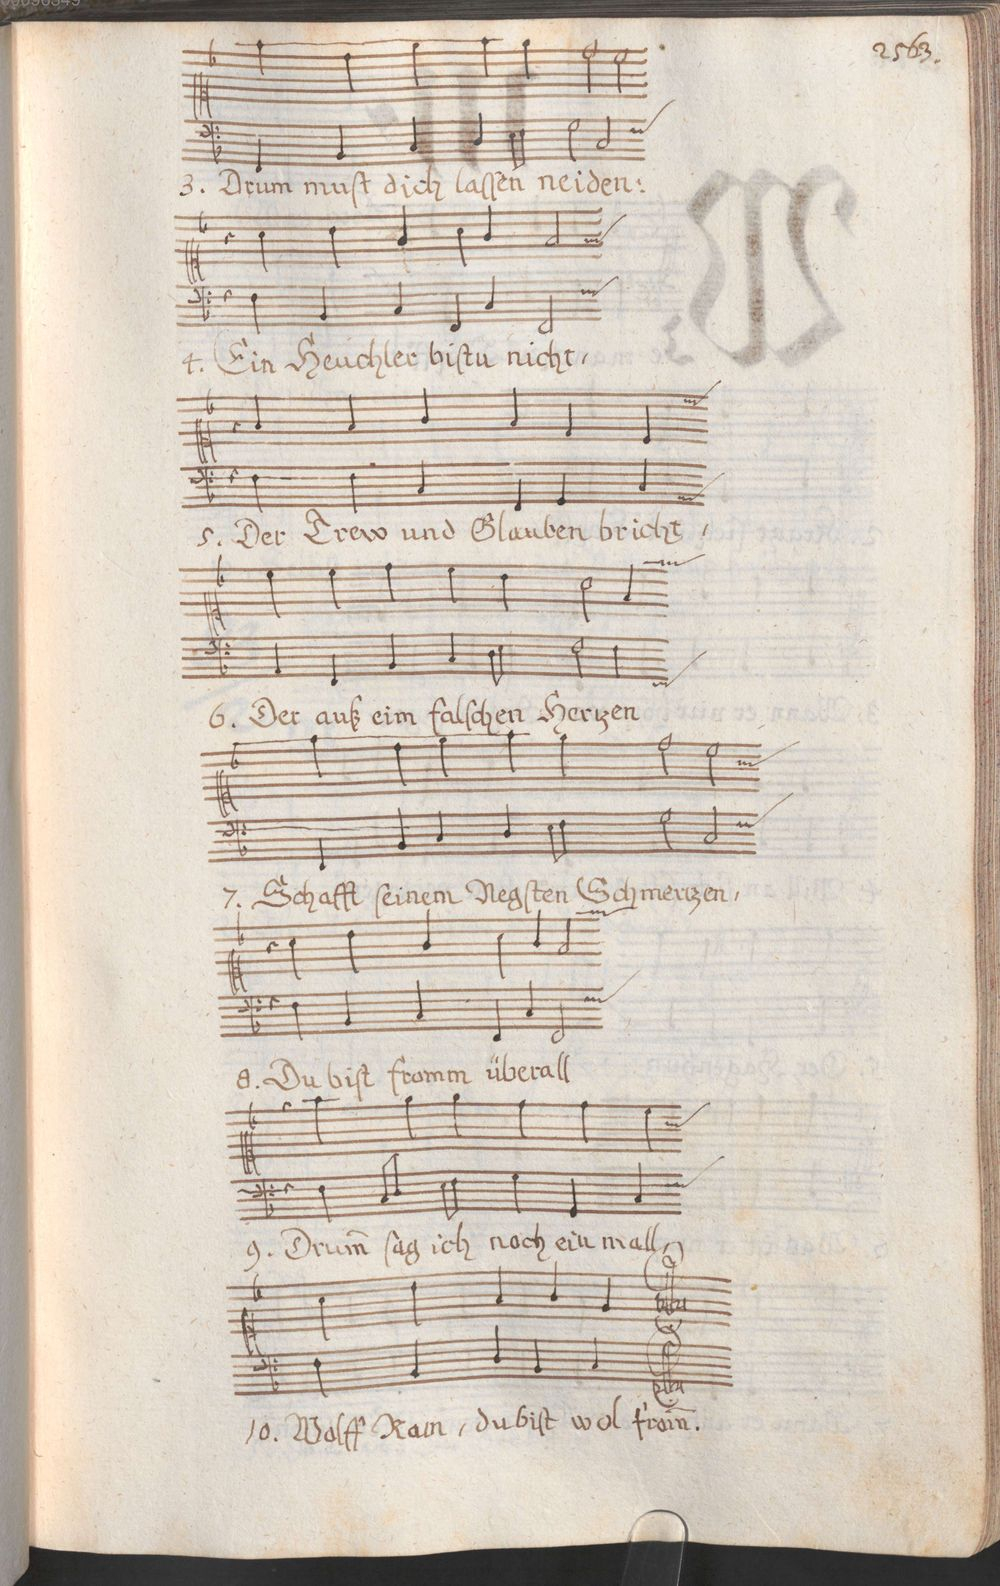 2563.
3. Drum must dich lassen neiden:
4. Ein Heuchler bistu nicht,
5. Der Trew und Glauben bricht,
6. Der auß eim falschen Hertzen
7. Schafft seinem Negsten Schmertzen,
8. Du bist fromm überall
9. Drum̄ sag ich noch ein mall,
10. Wolff Ram, du bist wol from̄.